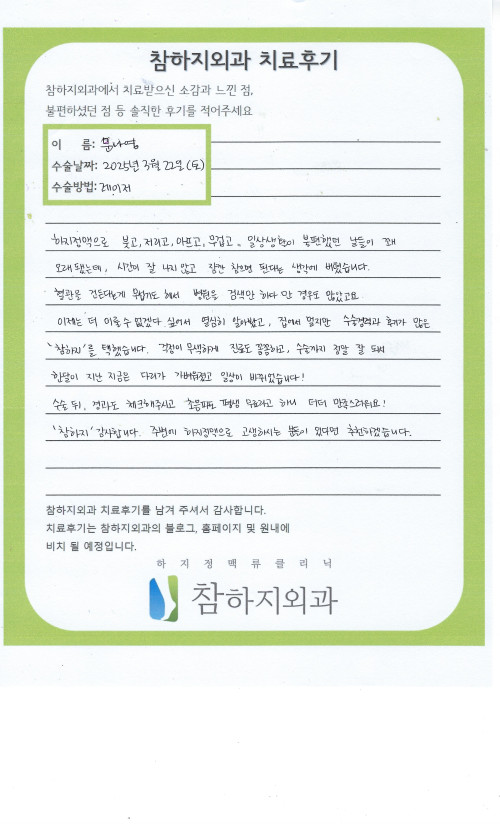 참하지외과 치료후기
참하지외과에서 치료받으신 소감과 느낀 점,
불편하셨던 점 등 솔직한 후기를 적어주세요
이 름: 문나영
수술날짜: 2025년 3월 22일 (토)
수술방법: 레이저
하지정맥으로 붓고, 저리고, 아프고, 무겁고.. 일상생활이 불편했던 날들이 꽤
오래 됐는데, 시간이 잘 나지 않고 잠깐 참으면 된다는 생각에 버텼습니다.
혈관을 건든다는게 무섭기도 해서 병원을 검색만 하다 만 경우도 많았고요
이제는 더 미룰 수 없겠다 싶어서 열심히 알아봤고, 집에서 멀지만 수술경력과 후기가 많은
'참하지'를 택했습니다. 걱정이 무색하게 진료도 꼼꼼하고, 수술까지 정말 잘 되서
한달이 지난 지금은 다리가 가벼워졌고 일상이 바뀌었습니다!
수술 뒤, 경과도 체크해주시고 초음파도 평생 무료라고 하니 더더 만족스러워요!
'참하지' 감사합니다. 주변에 하지정맥으로 고생하시는 분들이 있다면 추천하겠습니다.
참하지외과 치료후기를 남겨 주셔서 감사합니다.
치료후기는 참하지외과의 블로그, 홈페이지 및 원내에
비치 될 예정입니다.
하지정맥류클리닉
참하지외과